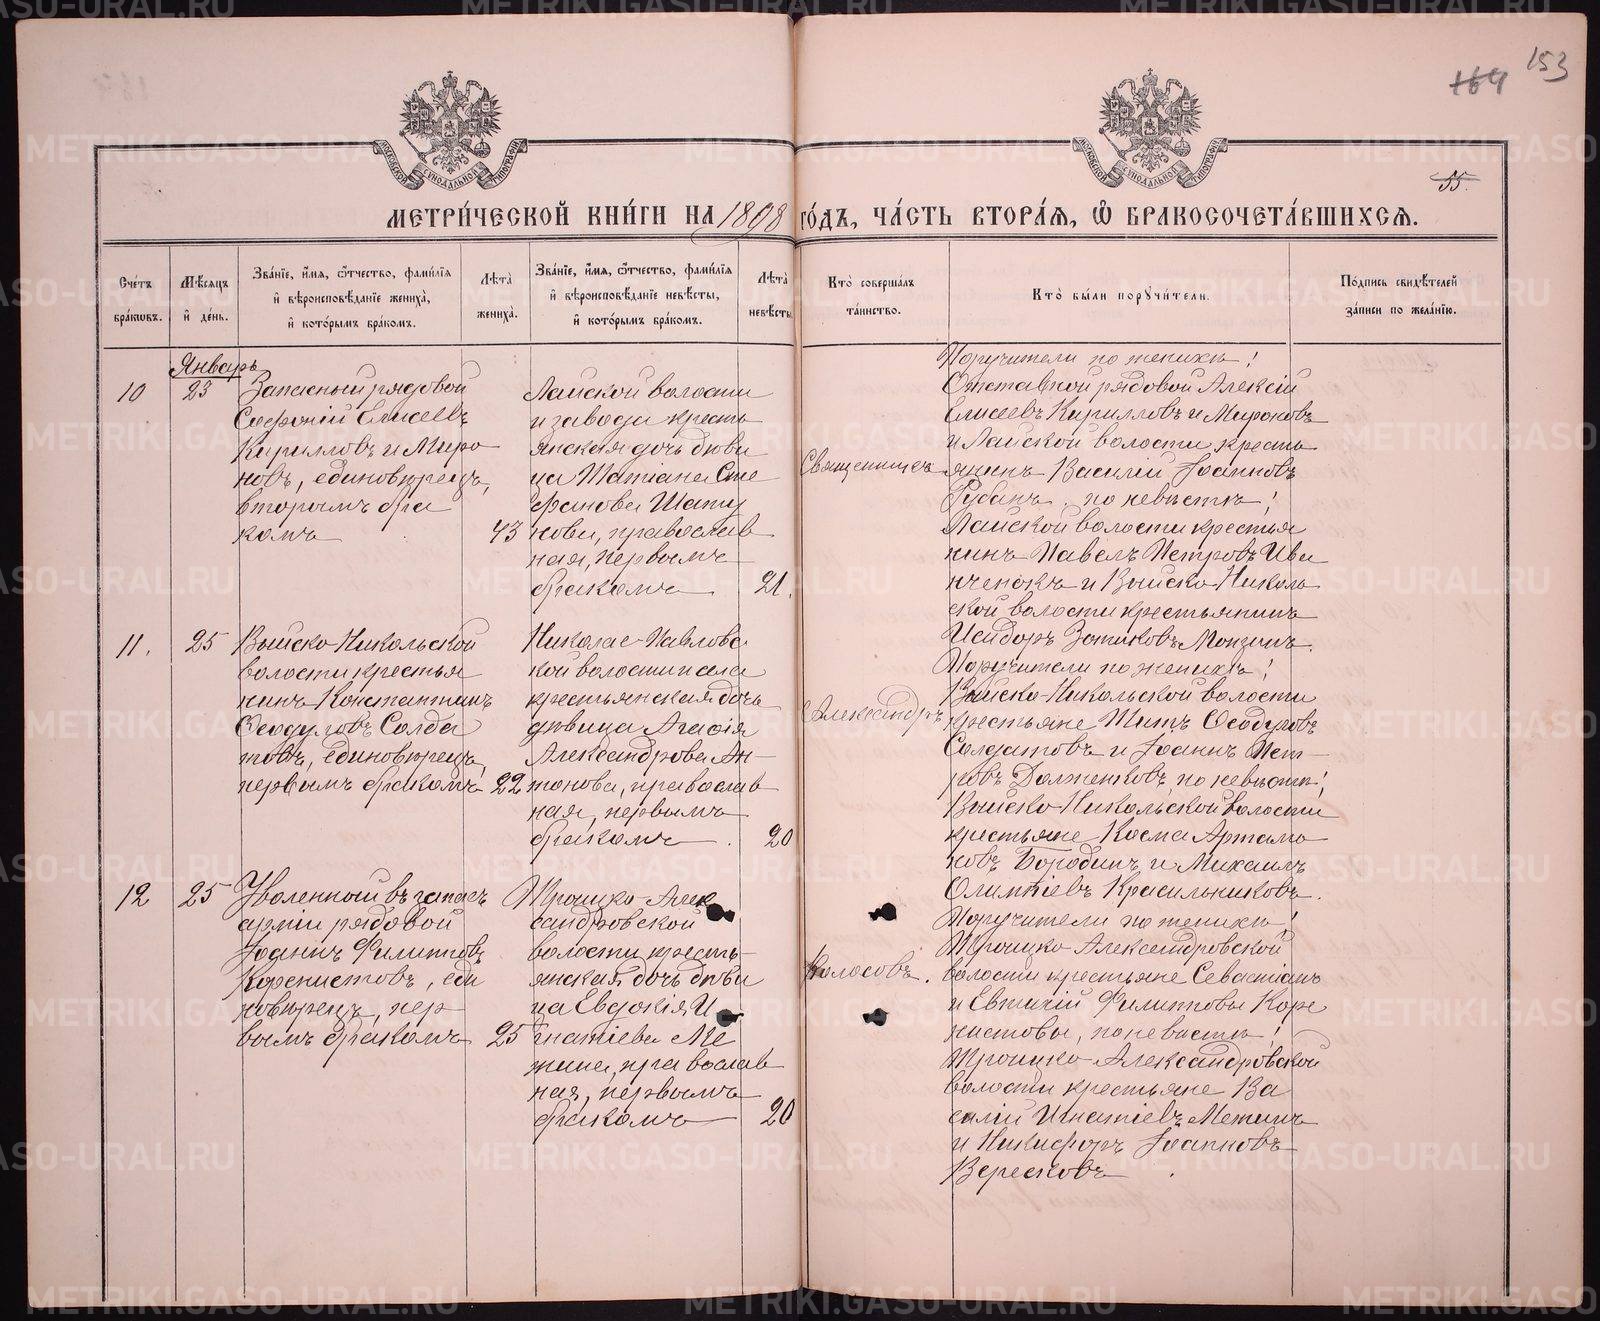 153
164
55.
МЕТРИ́ЧЕСКОЙ КНИ́ГИ НА 1898 ГО́ДЪ, ЧА́СТЬ ВТОРА́Я, Ѡ҆ БРАКОСОЧЕТА́ВШИХСЯ.
МОСКОВСКОЙ СѴНОДАЛЬНОЙ ТИПОГРАФІИ
МОСКОВСКОЙ СѴНОДАЛЬНОЙ ТИПОГРАФІИ
Сче́тъ
бра́кѡвъ.
Мѣ́сяцъ
и҆ де́нь.
Зва́нїе, и҆́мя, ѻ҆́тчество, фами́лїя
и҆ вѣроисповѣ́данїе жениха̀,
и҆ кото́рымъ бра́комъ.
Лѣ́та
жениха̀.
Зва́нїе, и҆́мя, ѻ҆́тчество, фами́лїя
и҆ вѣроисповѣ́данїе невѣ́сты,
и҆ кото́рымъ бра́комъ.
Лѣ́та
невѣ́сты
Кто̀ соверша́лъ
та́инство.
Кто̀ бы́ли порꙋчи́тели.
По́дпись свидѣ́телей
за́писи по жела́нїю.
Январь
10
23
Запасный рядовой
Софоній Елисеевъ
Кирилловъ и Миро
новъ, единовѣрецъ,
вторымъ бра
комъ
43
Лайской волости
и завода кресть
янская дочь дѣви
ца Татіана Сте
фанова Шату
нова, православ
ная, первымъ
бракомъ
21.
Священникъ
Поручители по женихѣ:
Отставной рядовой Алексій
Елисеевъ Кирилловъ и Мироновъ
и Лайской волости кресть
янинъ Василій Іоанновъ
Рубанъ, по невѣстѣ:
Лайской волости крестья
нинъ Павелъ Петровъ Ива
нченокъ и Выйско-Николь
ской волости крестьянинъ
Исидоръ Зотиковъ Мокзанъ.
11.
25
Выйско-Никольской
волости крестья
нинъ Константинъ
Ѳеодуловъ Солда
товъ, единовѣрецъ,
первымъ бракомъ
22
Николае-Павловс
кой волости и села
крестьянская дочь
дѣвица Агафія
Александрова Ан-
тонова, православ
ная, первымъ
бракомъ.
20
Александръ
Поручители по женихѣ:
Выйско-Никольской волости
крестьяне Титъ Ѳеодуловъ
Солдатовъ и Іоаннъ Пет-
ровъ Долженковъ, по невѣстѣ:
Выйско-Никольской волости
крестьяне Косма Артамо
новъ Бородинъ и Михаилъ
Олимпіевъ Красильниковъ.
12
25
Уволенный въ запасъ
арміи рядовой
Іоаннъ Филипповъ
Корнистовъ, еди
новѣрецъ, пер
вымъ бракомъ
25
Троицко-Алек
сандровской
волости кресть-
янская дочь дѣви
ца Евдокія И
гнатіева Ме
тина, православ
ная, первымъ
бракомъ
20
Колосовъ.
Поручители по женихѣ:
Троицко-Александровской
волости крестьяне Севастіанъ
и Евтихій Филипповы Кор
нистовы, по невѣстѣ:
Троицко-Александровской
волости крестьяне Ва
силій Игнатіевъ Метинъ
и Никифоръ Іоанновъ
Вересковъ.
METRIKI.GASO-URAL.RU